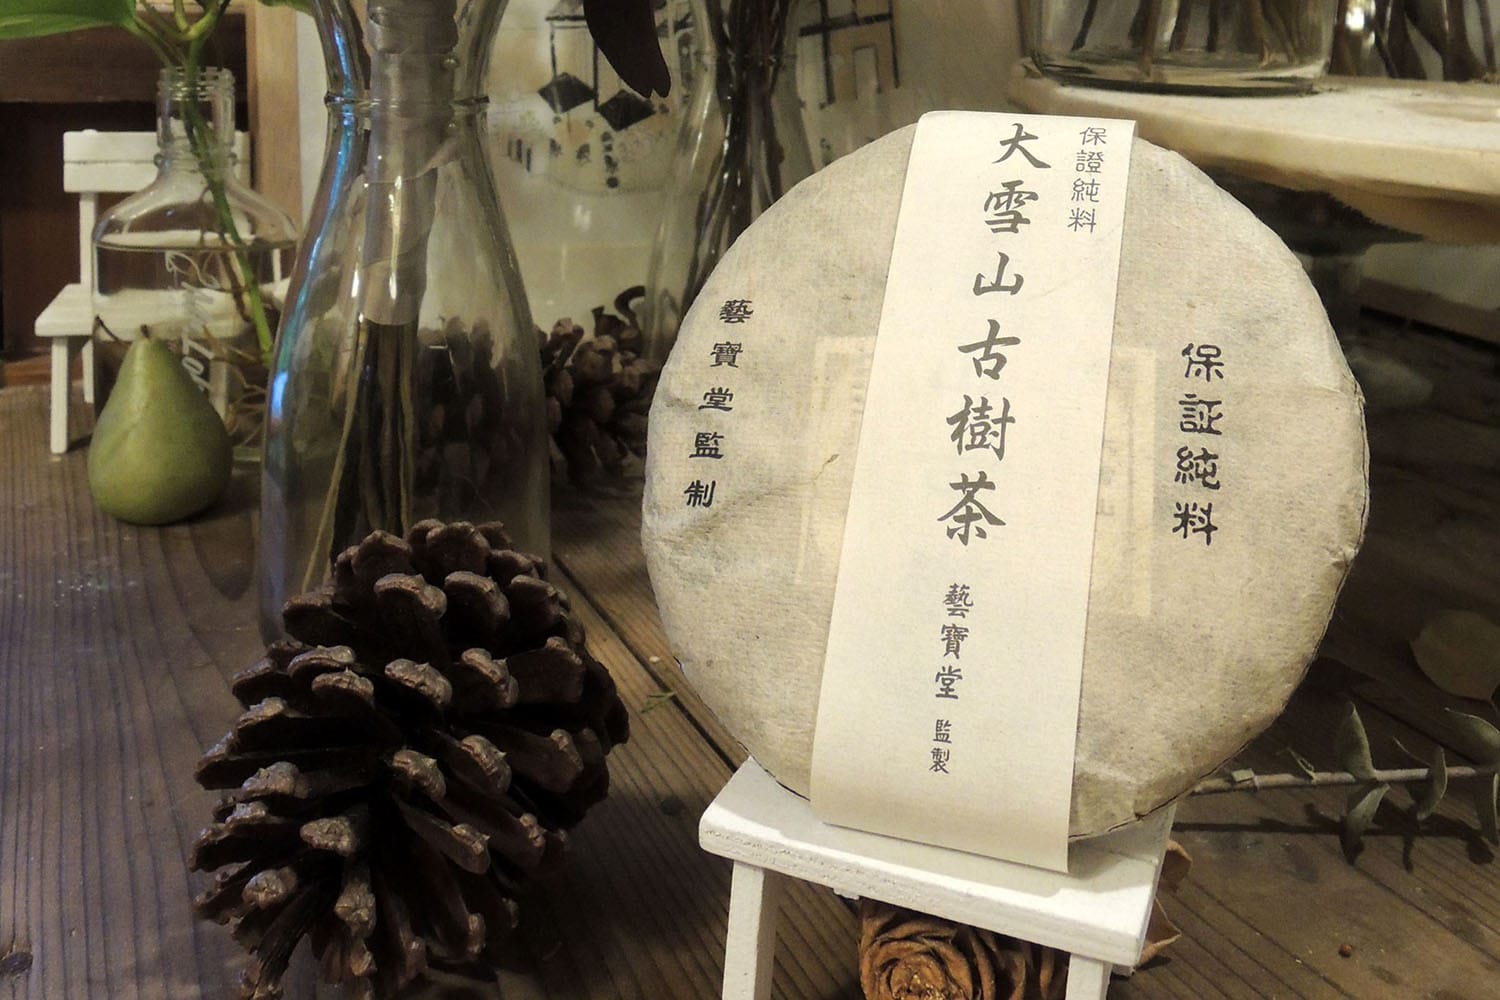 保證純料
大雪山古樹茶
藝寶堂
監製
保証純料
藝寶堂監制